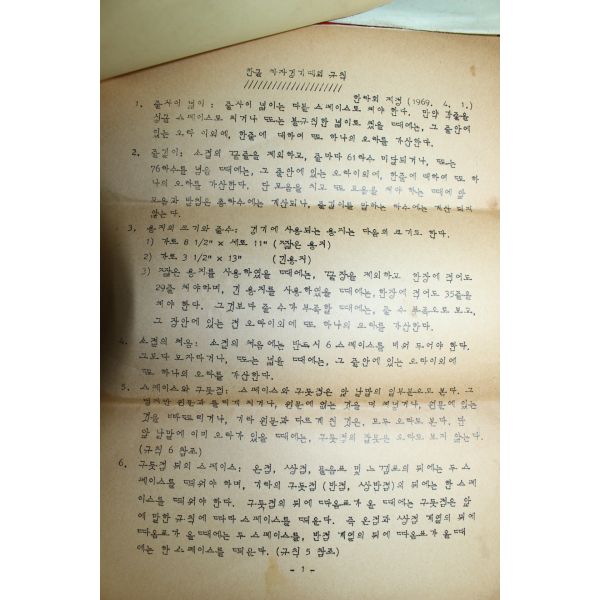 한글 타자경기대회 규칙
//////////////////////
한타회 제정 (1969. 4. 1.)
1. 줄사이 넓이: 줄사이 넓이는 따블 스페이스로 쳐야 한다. 만약 각줄을
싱글 스페이스로 치거나 또는 불규칙한 넓이로 쳤을 때에는, 그 줄안에
있는 오타 이외에, 한줄에 대하여 또 하나의 오타를 가산한다.
2. 줄길이: 소절의 끝줄을 제외하고, 줄마다 61타수 미달되거나, 또는
76타수를 넘을 때에는, 그 줄안에 있는 오타이외에, 한줄에 대하여 또 하
나의 오타를 가산한다. 단 모음을 치고 또 모음을 쳐야 하는 때에 앞
모음과 받침은 총타수에는 계산되나, 줄길이를 말하는 타수에는 계산 되지
않는다.
3. 용지의 크기와 줄수: 경기에 사용되는 용지는 다음의 크기로 한다.
1) 가로 8 1/2" × 세로 11" (짧은 용지)
2) 가로 3 1/2" × 13" (긴용지)
3) 짧은 용지를 사용하였을 때에는, 끝장을 제외하고 한장에 적어도
29줄 쳐야하며, 긴 용지를 사용하였을 때에는, 한장에 적어도 35줄을
쳐야 한다. 그것보다 줄 수가 부족할 때에는, 줄 수 부족으로 보고,
그 장안에 있는 전 오타이외에 또 하나의 오타를 가산한다.
4. 소절의 처음: 소절의 처음에는 반드시 6 스페이스를 비워 두어야 한다.
그보다 모자라거나, 또는 넓을 때에는, 그 줄안에 있는 오타이외에
또 하나의 오타를 가산한다.
5. 스페이스와 구둣점: 스페이스와 구둣점은 앞 낱말의 일부분으로 본다. 그
렇지만 원문과 틀리게 치거나, 원문에 없는 것을 더 찍었거나, 원문에 있는
것을 빠뜨리거나, 기타 원문과 다르게 친 것은, 모두 오타로 본다. 단
앞 낱말에 이미 오타가 있을 때에는, 구둣점의 잘못은 오타로 보지 않는다.
(규칙 6 참조)
6. 구둣점 뒤의 스페이스: 온점, 상점, 물음표 및 느낌표의 뒤에는 두 스
페이스를 띄워야 하며, 기타의 구둣점 (반점, 상반점)의 뒤에는 한 스페
이스를 띄워야 한다. 구둣점의 뒤에 따옴표가 올 때에는 구둣점은 앞
에 말한 규칙에 따라 스페이스를 띄운다. 즉 온점과 상점 계열의 뒤에
따옴표가 올 때에는 두 스페이스를, 반점 계열의 뒤에 따옴표가 올 때
에는 한 스페이스를 띄운다. (규칙 5 참조)
- 1 -